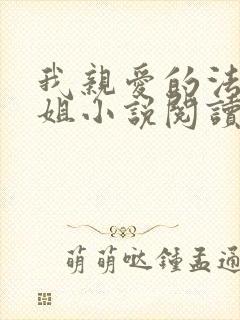 我親愛的法
姐小說閱讀
萌萌哒鍾孟通